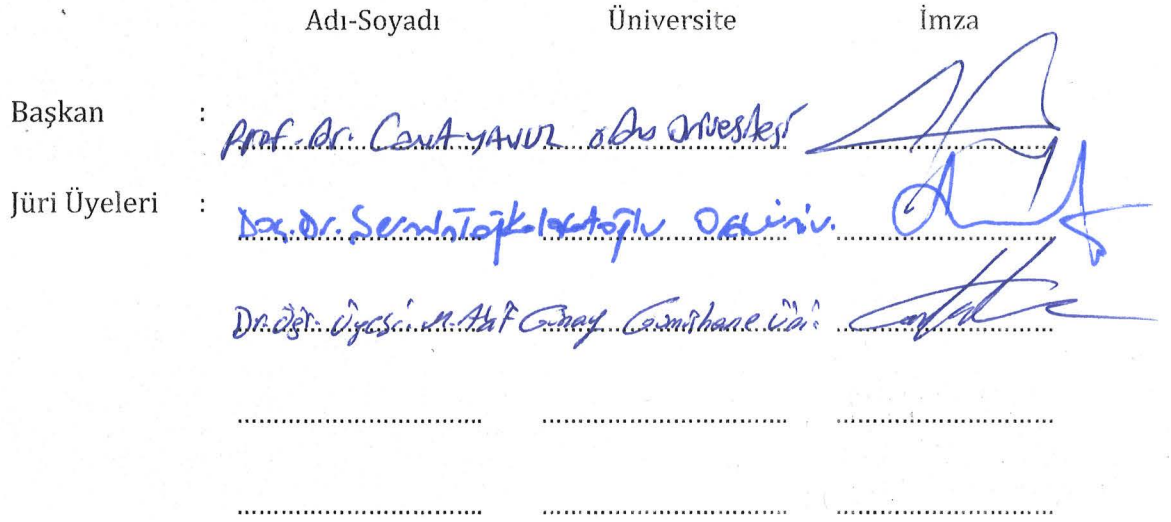 Adı-Soyadı Üniversite İmza
Başkan : Prof. Dr. Cavit YAVUZ Ordu Üniversitesi
Jüri Üyeleri : Doç. Dr. Ordu Üniv.
Dr. Öğr. Üyesi M. Akif Günay Gümüşhane Üni.